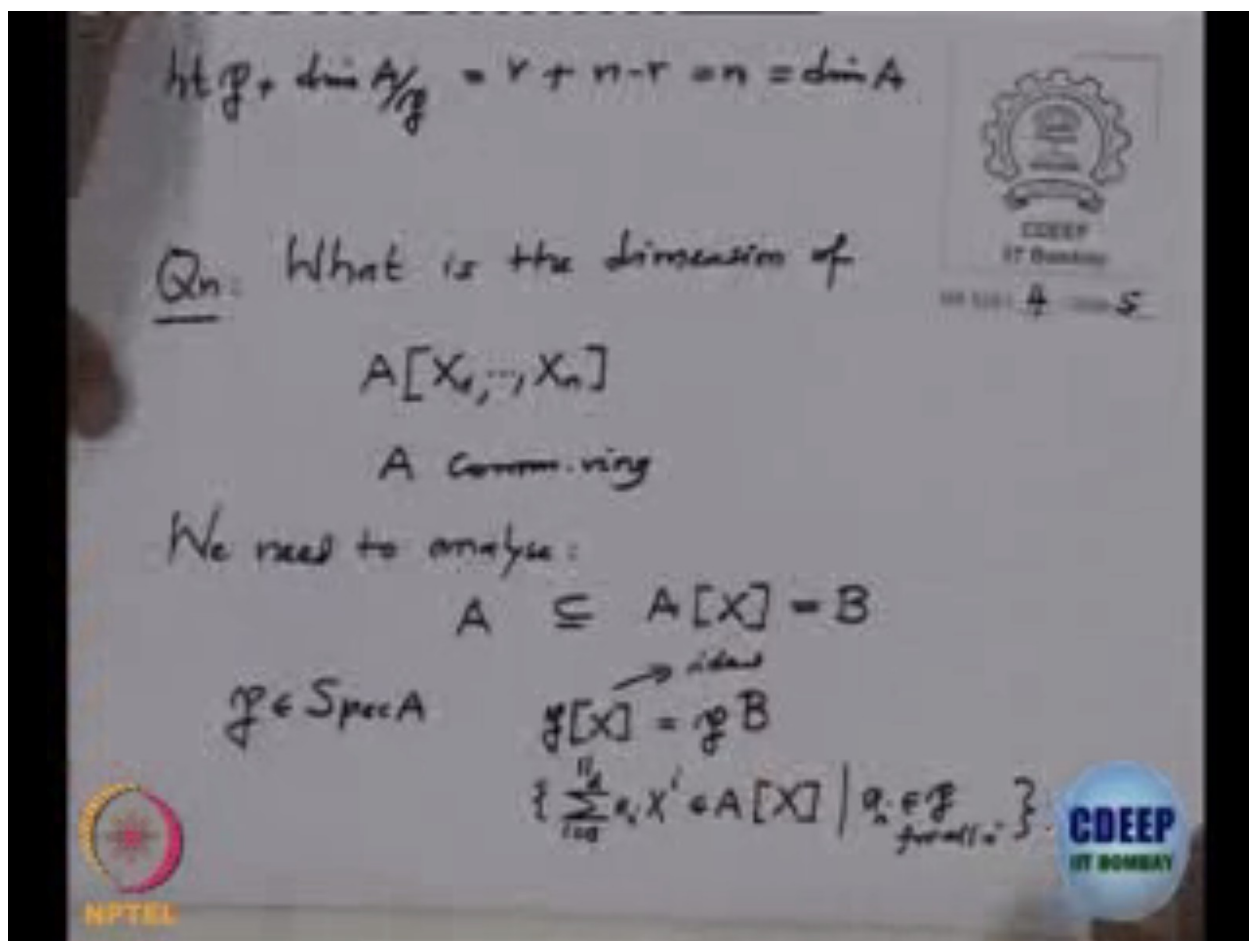 ht 𝔭 + dim A/𝔭 = r + n-r = n = dim A
CDEEP
IT Bombay
4 5
Qn. What is the dimension of
A[X₁,...,Xₙ]
A comm. ring
We need to analyse:
A ⊆ A[X] = B
→ ideal
𝔭 ∈ Spec A 𝔭[X] = 𝔭B
"
{ ∑ᵢ₌₀ᵈ aᵢXⁱ ∈ A[X] | aᵢ ∈ 𝔭 for all i }.
CDEEP
IIT BOMBAY
NPTEL